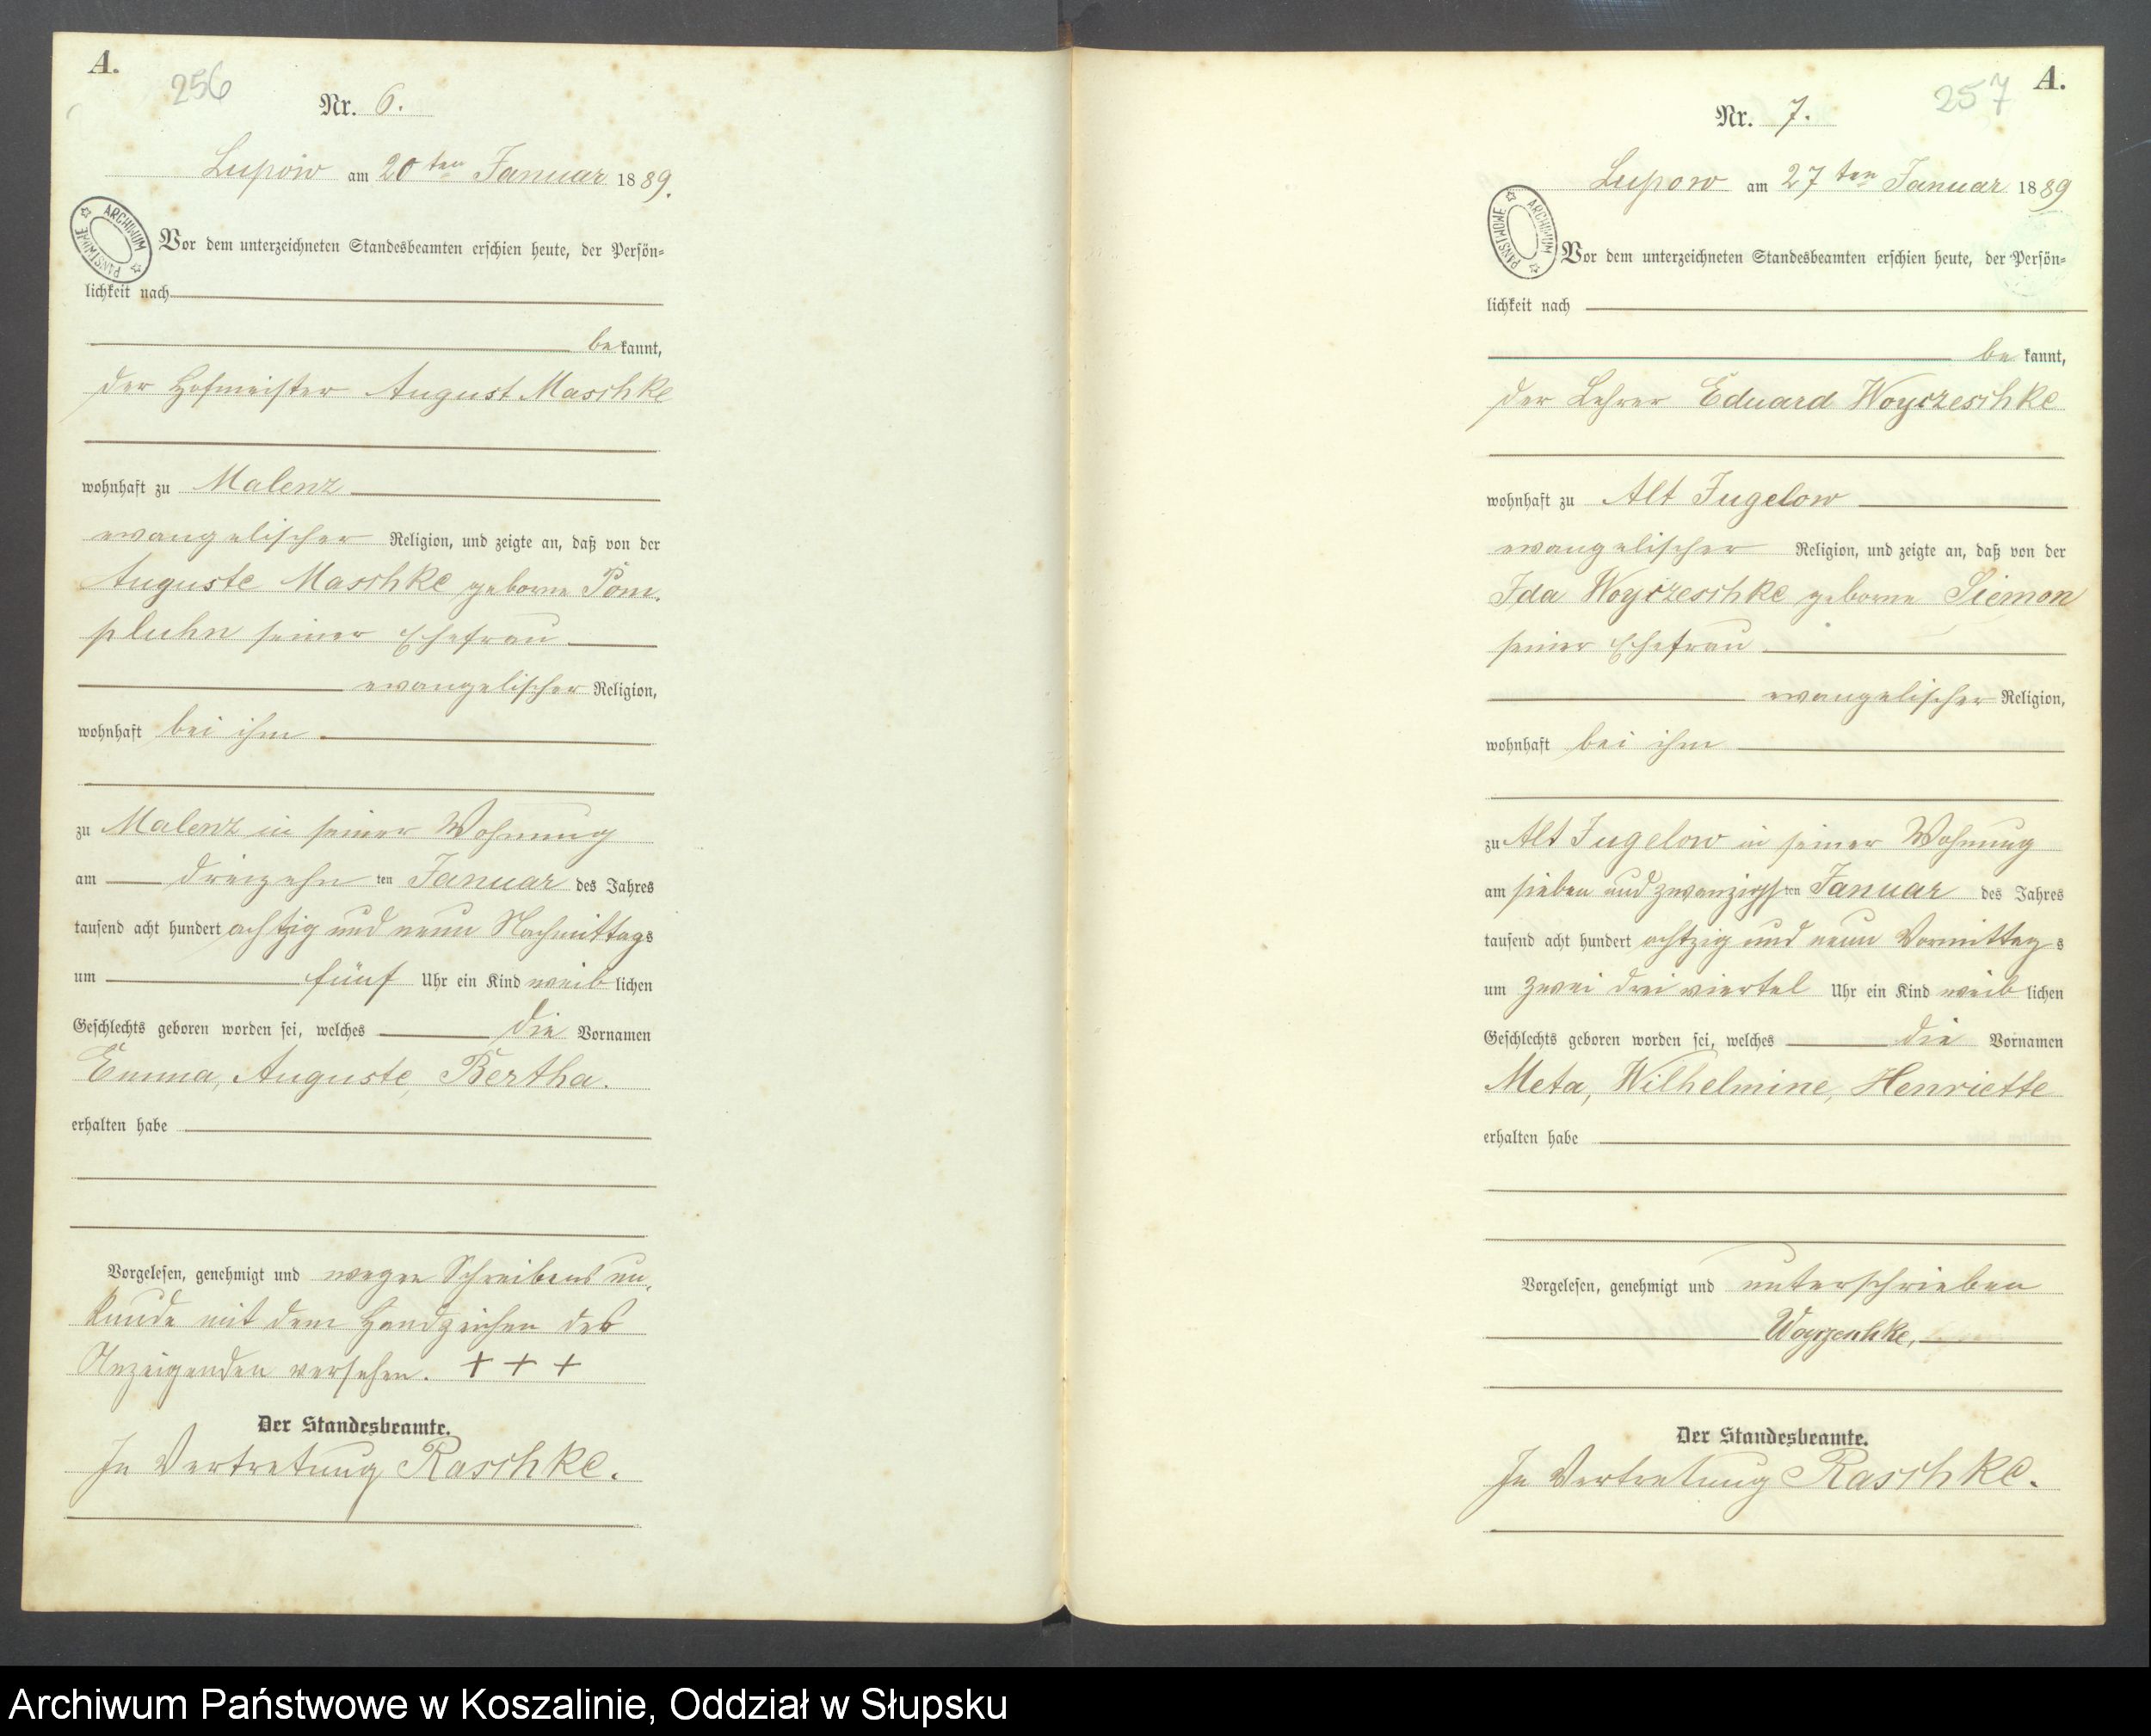 A.
256
Nr. 6.
Lupow am 20ten Januar 1889.
ARCHIWUM PAŃSTWOWE
Vor dem unterzeichneten Standesbeamten erschien heute, der Persön-
lichkeit nach
bekannt,
der Hofmeister August Maschke
wohnhaft zu Malenz
evangelischer Religion, und zeigte an, daß von der
Auguste Maschke geborne Pom-
pluhn seiner Ehefrau
evangelischer Religion,
wohnhaft bei ihm
zu Malenz in seiner Wohnung
am dreizehnten Januar des Jahres
tausend acht hundert achtzig und neun Nachmittags
um fünf Uhr ein Kind weiblichen
Geschlechts geboren worden sei, welches die Vornamen
Emma, Auguste, Bertha.
erhalten habe
Vorgelesen, genehmigt und wegen Schreibensun-
kunde mit dem Handzeichen des
Anzeigenden versehen. + + +
Der Standesbeamte.
In Vertretung Raschke.
A.
257
Nr. 7.
Lupow am 27ten Januar 1889
ARCHIWUM PAŃSTWOWE
Vor dem unterzeichneten Standesbeamten erschien heute, der Persön-
lichkeit nach
bekannt,
der Lehrer Eduard Woyczeschke
wohnhaft zu Alt Jugelow
evangelischer Religion, und zeigte an, daß von der
Ida Woyczeschke geborne Siemon
seiner Ehefrau
evangelischer Religion,
wohnhaft bei ihm
zu Alt Jugelow in seiner Wohnung
am sieben und zwanzigsten Januar des Jahres
tausend acht hundert achtzig und neun Vormittags
um zwei drei viertel Uhr ein Kind weiblichen
Geschlechts geboren worden sei, welches die Vornamen
Meta, Wilhelmine, Henriette
erhalten habe
Vorgelesen, genehmigt und unterschrieben
Woyczeschke,
Der Standesbeamte.
In Vertretung Raschke.
Archiwum Państwowe w Koszalinie, Oddział w Słupsku